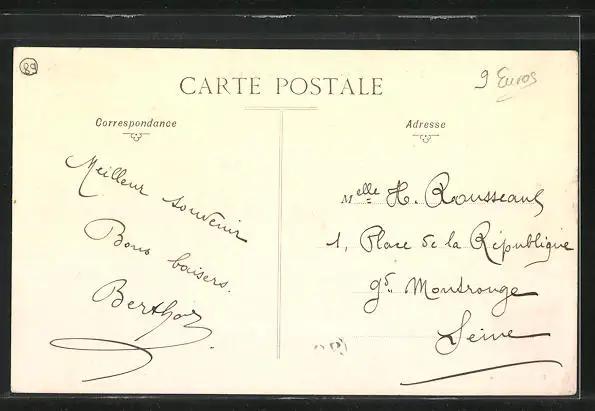 89
CARTE POSTALE
9 Euros
Correspondance
Meilleur souvenir
Bons baisers.
Bertha
Adresse
Melle H. Rousseau
1, Place de la République
gd. Montrouge
Seine